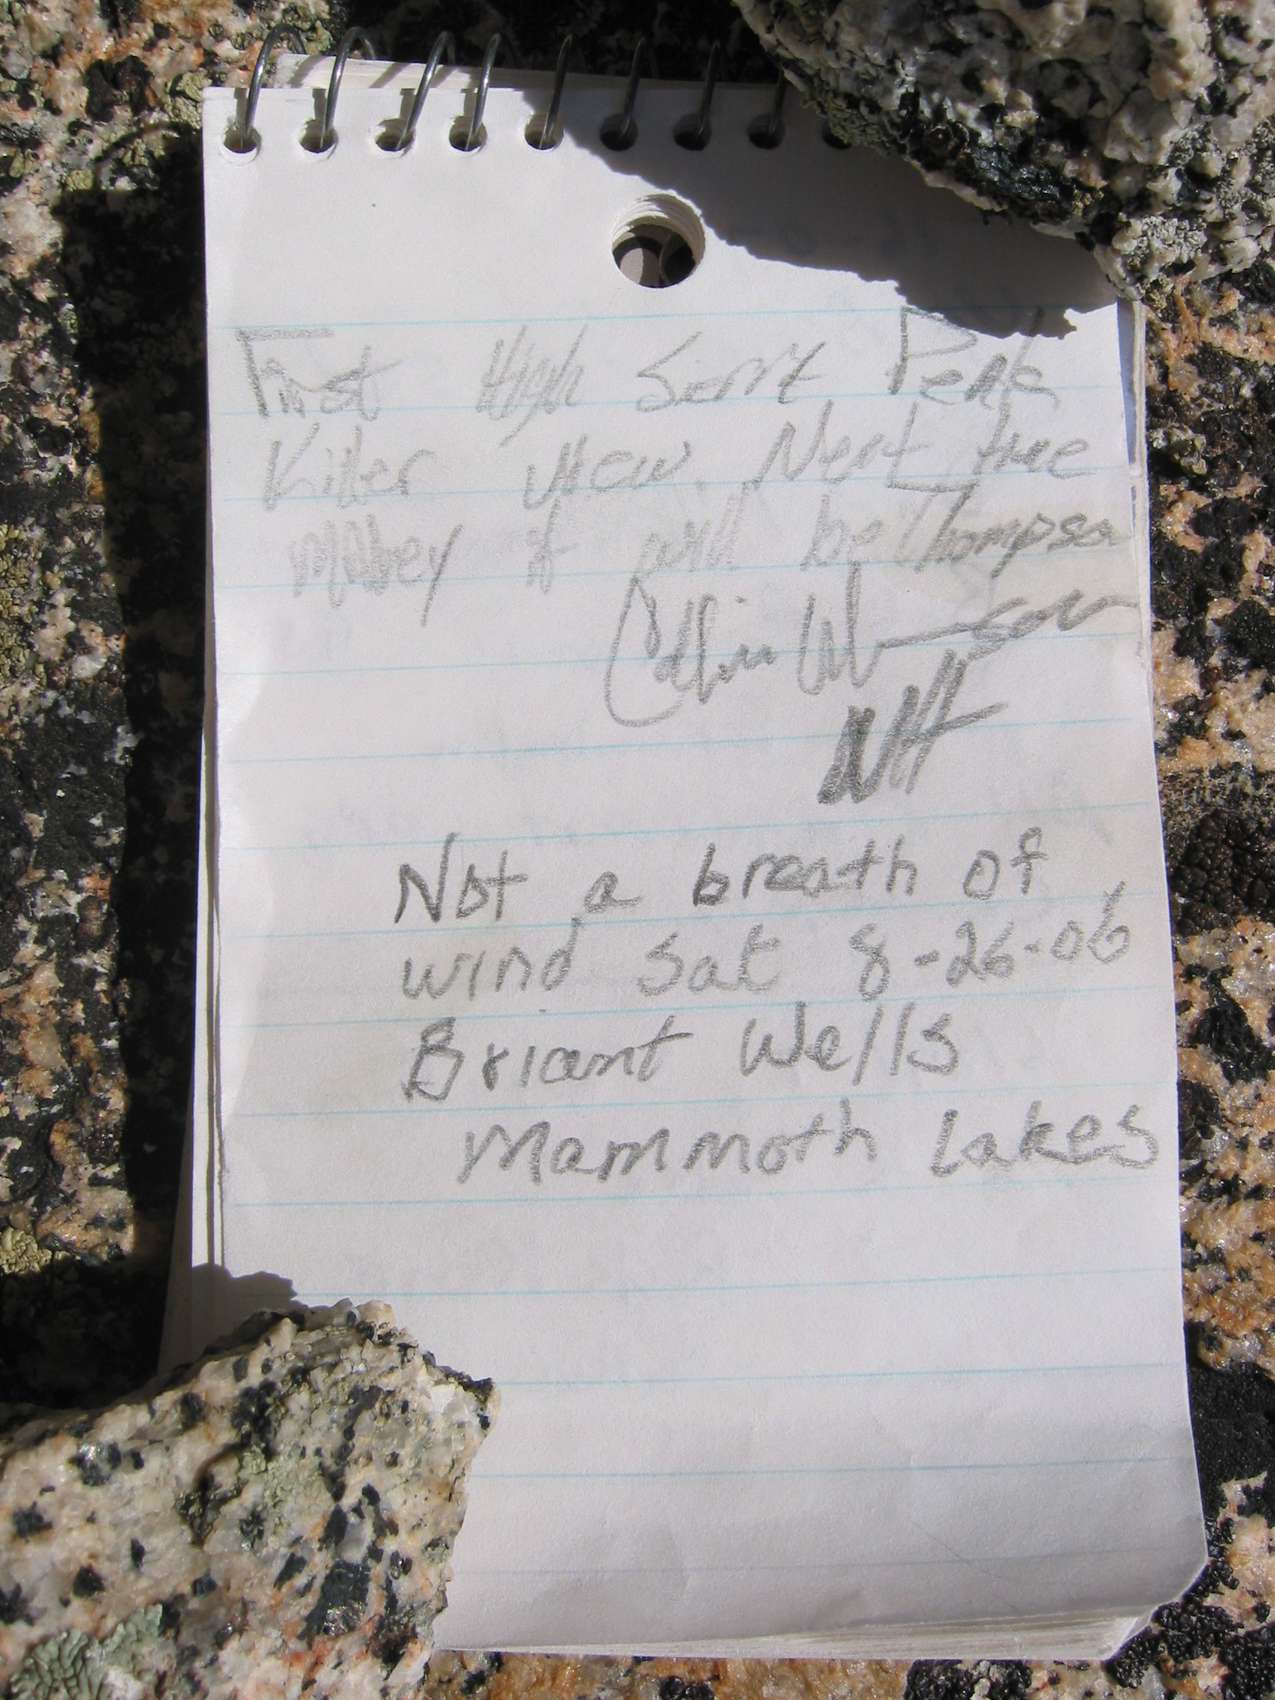 First High Peak
Killer view. Next time
it will be Thompson
Collin
Not a breath of
wind Sat 8-26-06
Briant Wells
Mammoth Lakes